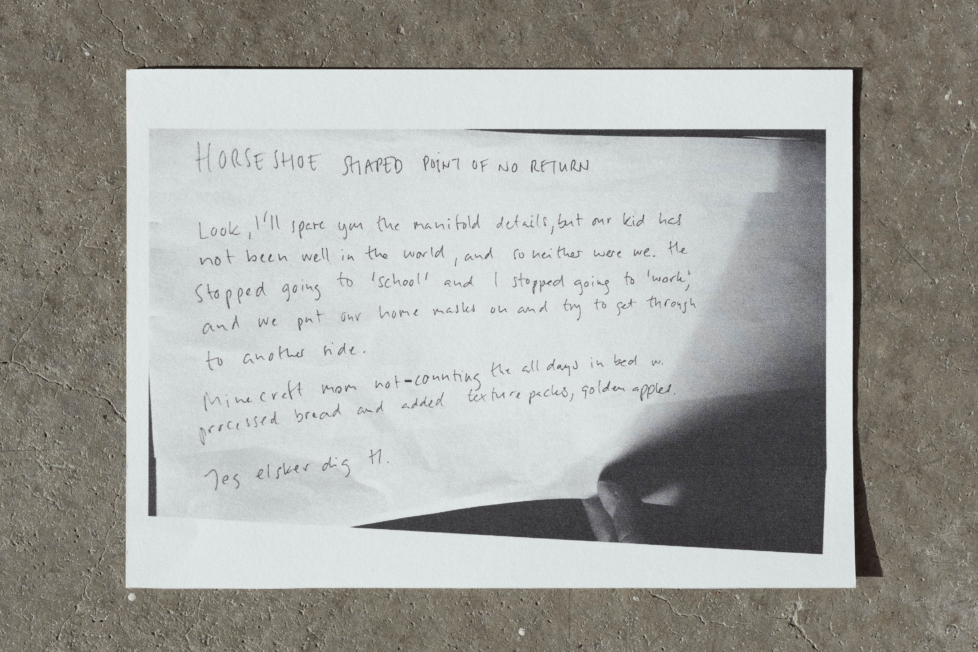 HORSESHOE SHAPED POINT OF NO RETURN
Look, I'll spare you the manifold details, but our kid has
not been well in the world, and so neither were we. He
stopped going to 'school' and I stopped going to 'work',
and we put our home masks on and try to get through
to another side.
Minecraft mom not-counting the all days in bed w.
processed bread and added texture packs, golden apples.
Jeg elsker dig H.